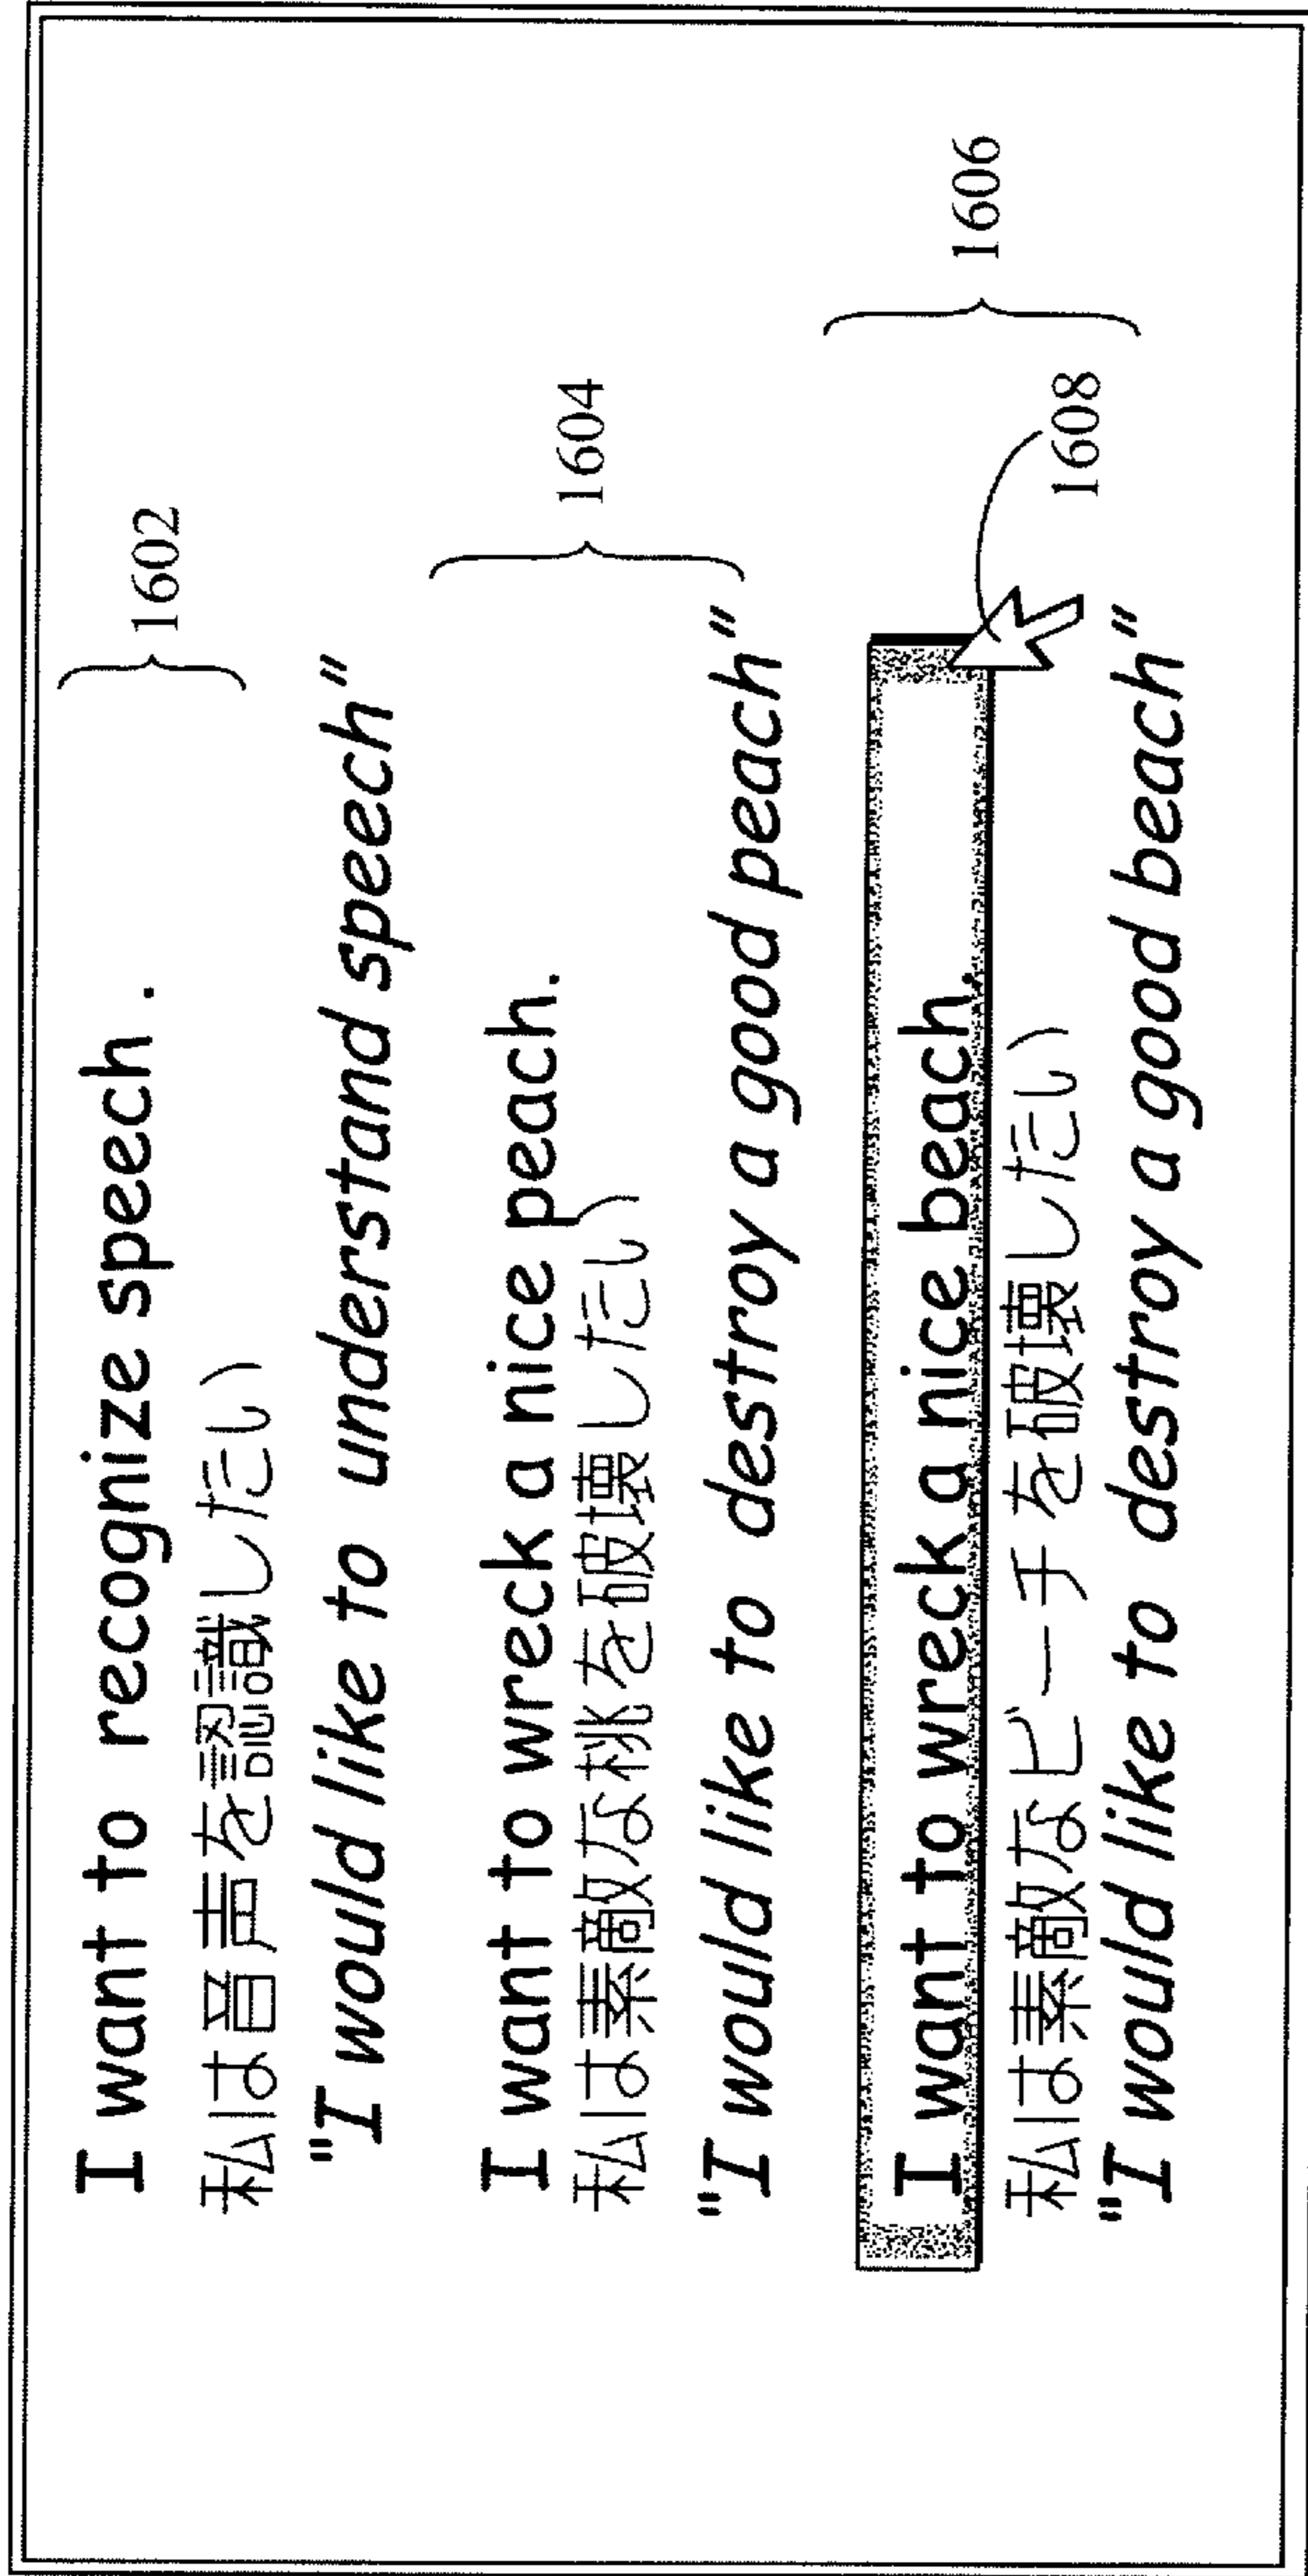 I want to recognize speech.
私は音声を認識したい
"I would like to understand speech"
1602
I want to wreck a nice peach.
私は素敵な桃を破壊したい
"I would like to destroy a good peach"
1604
I want to wreck a nice beach.
私は素敵なビーチを破壊したい
"I would like to destroy a good beach"
1606
1608